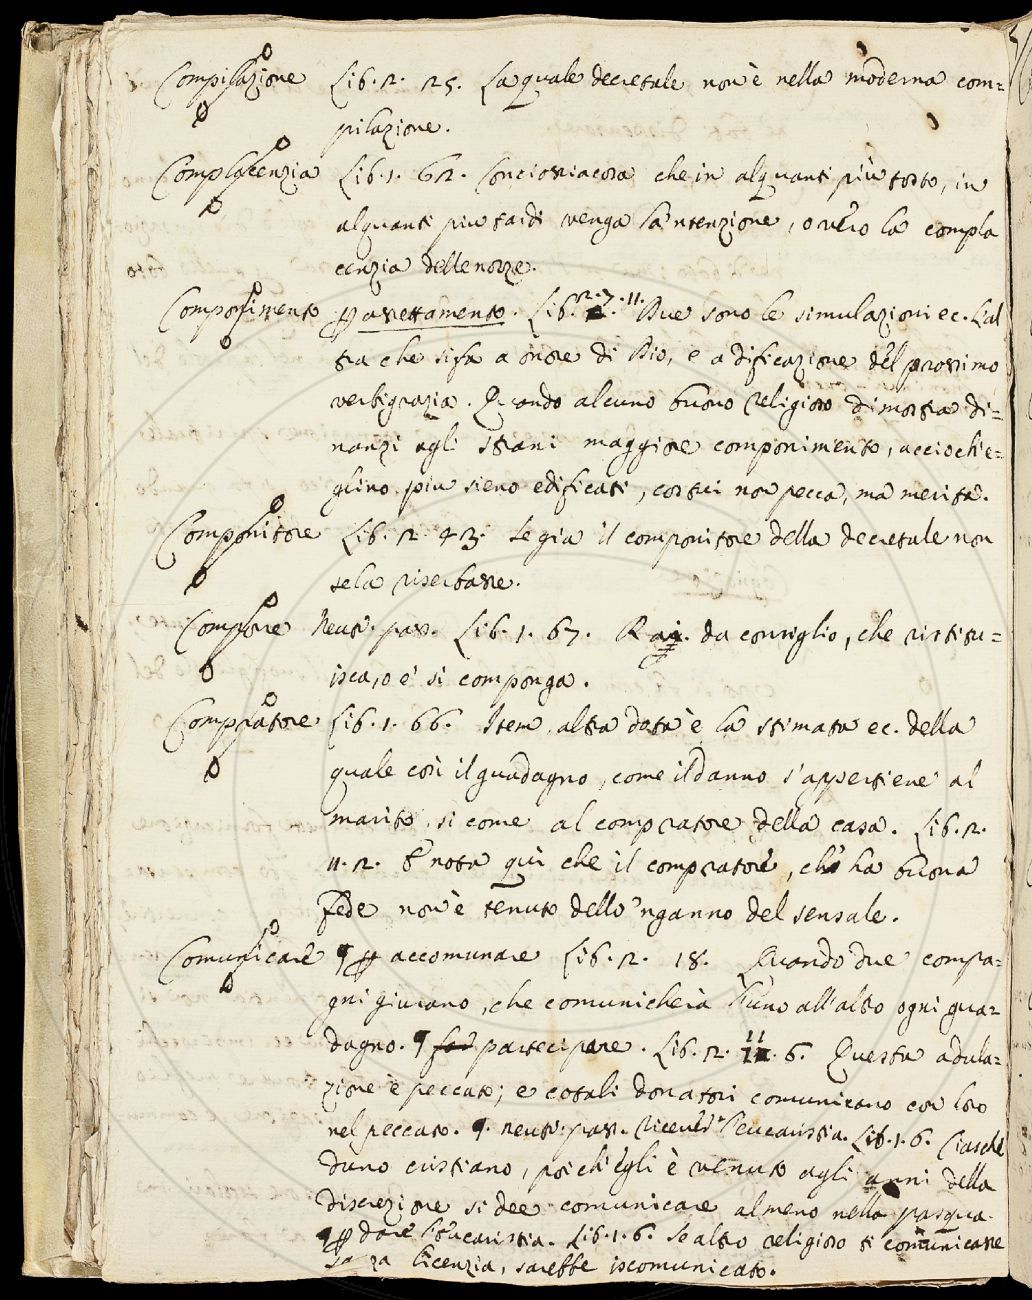 Compilazione Lib. 2. 25. La quale decretale non è nella moderna com=
pilazione.
Complacenzia Lib. 1. 62. Conciossiacosa che in alquanti più tosto, in
alquanti piu tardi venga la 'ntenzione, o vero la compla
cenzia delle nozze.
Componimento assettamento. Lib. 2. 7. 11. Due sono le simulazioni ec. L'al
tra che si fa a onore di Dio, e a dificazione del prossimo
verbigrazia. Quando alcuno buono religioso dimostra di=
nanzi agli strani maggiore componimento, acciochè e=
glino piu sieno edificati, costui non pecca, ma merita.
Componitore Lib. 2. 43. Se gia il componitore della decretale non
se la riserbasse.
Comporre Neutr. pass. Lib. 1. 67. da consiglio, che ristitu=
isca, o e' si componga.
Compratore Lib. 1. 66. Item, altra dota è la stimata ec. della
quale così il guadagno, come il danno s'appertiene al
marito, si come al compratore della casa. Lib. 2.
11. 2. E nota quì che il compratore, che ha buona
fede non è tenuto dello 'nganno del sensale.
Comunicare ¶ accomunare Lib. 2. 18. Quando due compa=
gni giurano, che comunicherà l'uno all'altro ogni gua=
dagno. ¶ partecipare. Lib. 2. 11. 6. Questa adula=
zione è peccato; e cotali donatori comunicano con loro
nel peccato. ¶. neutr. pass. ricever l'eucaristia. Lib. 1. 6. Ciasche
duno cristiano, poich'egli è venuto agli anni della
discrezione si dee comunicare almeno nella pasqua.
¶ dare l'eucaristia. Lib. 1. 6. Se altro religioso ti comunicasse
sanza licenzia, sarebbe iscomunicato.